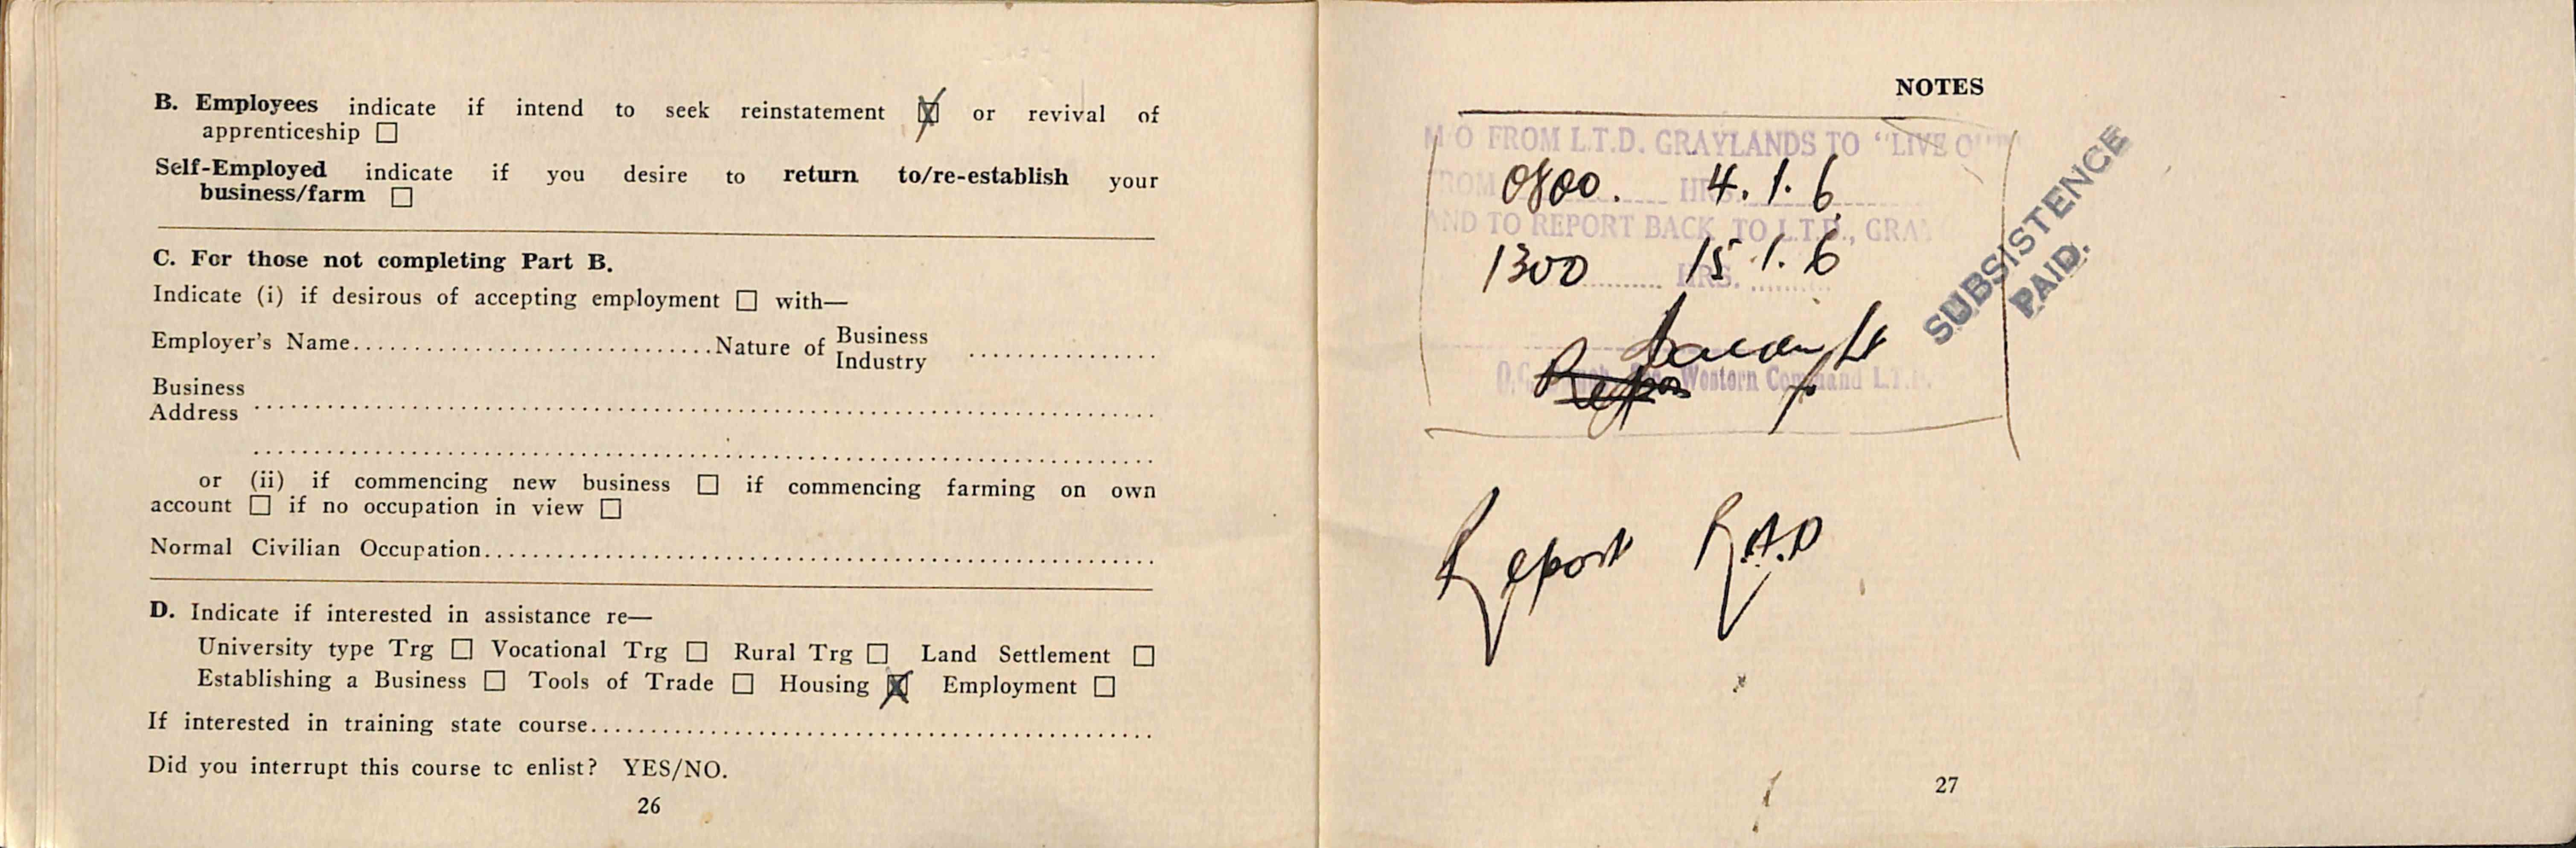 B. Employees indicate if intend to seek reinstatement ☒ or revival of
apprenticeship ☐
Self-Employed indicate if you desire to return to/re-establish your
business/farm ☐
C. For those not completing Part B.
Indicate (i) if desirous of accepting employment ☐ with—
Employer's Name..............................Nature of Business Industry ................
Business
Address ................................................................................
................................................................................
or (ii) if commencing new business ☐ if commencing farming on own
account ☐ if no occupation in view ☐
Normal Civilian Occupation............................................................
D. Indicate if interested in assistance re—
University type Trg ☐ Vocational Trg ☐ Rural Trg ☐ Land Settlement ☐
Establishing a Business ☐ Tools of Trade ☐ Housing ☒ Employment ☐
If interested in training state course..................................................
Did you interrupt this course to enlist? YES/NO.
26
NOTES
FROM L.T.D. GRAYLANDS TO "LIVE
0800. HRS. 4.1.6
AND TO REPORT BACK TO L.T.D.,
1300 HRS. 15.1.6
Western Command
SUBSISTENCE
PAID.
Report R.A.P
27